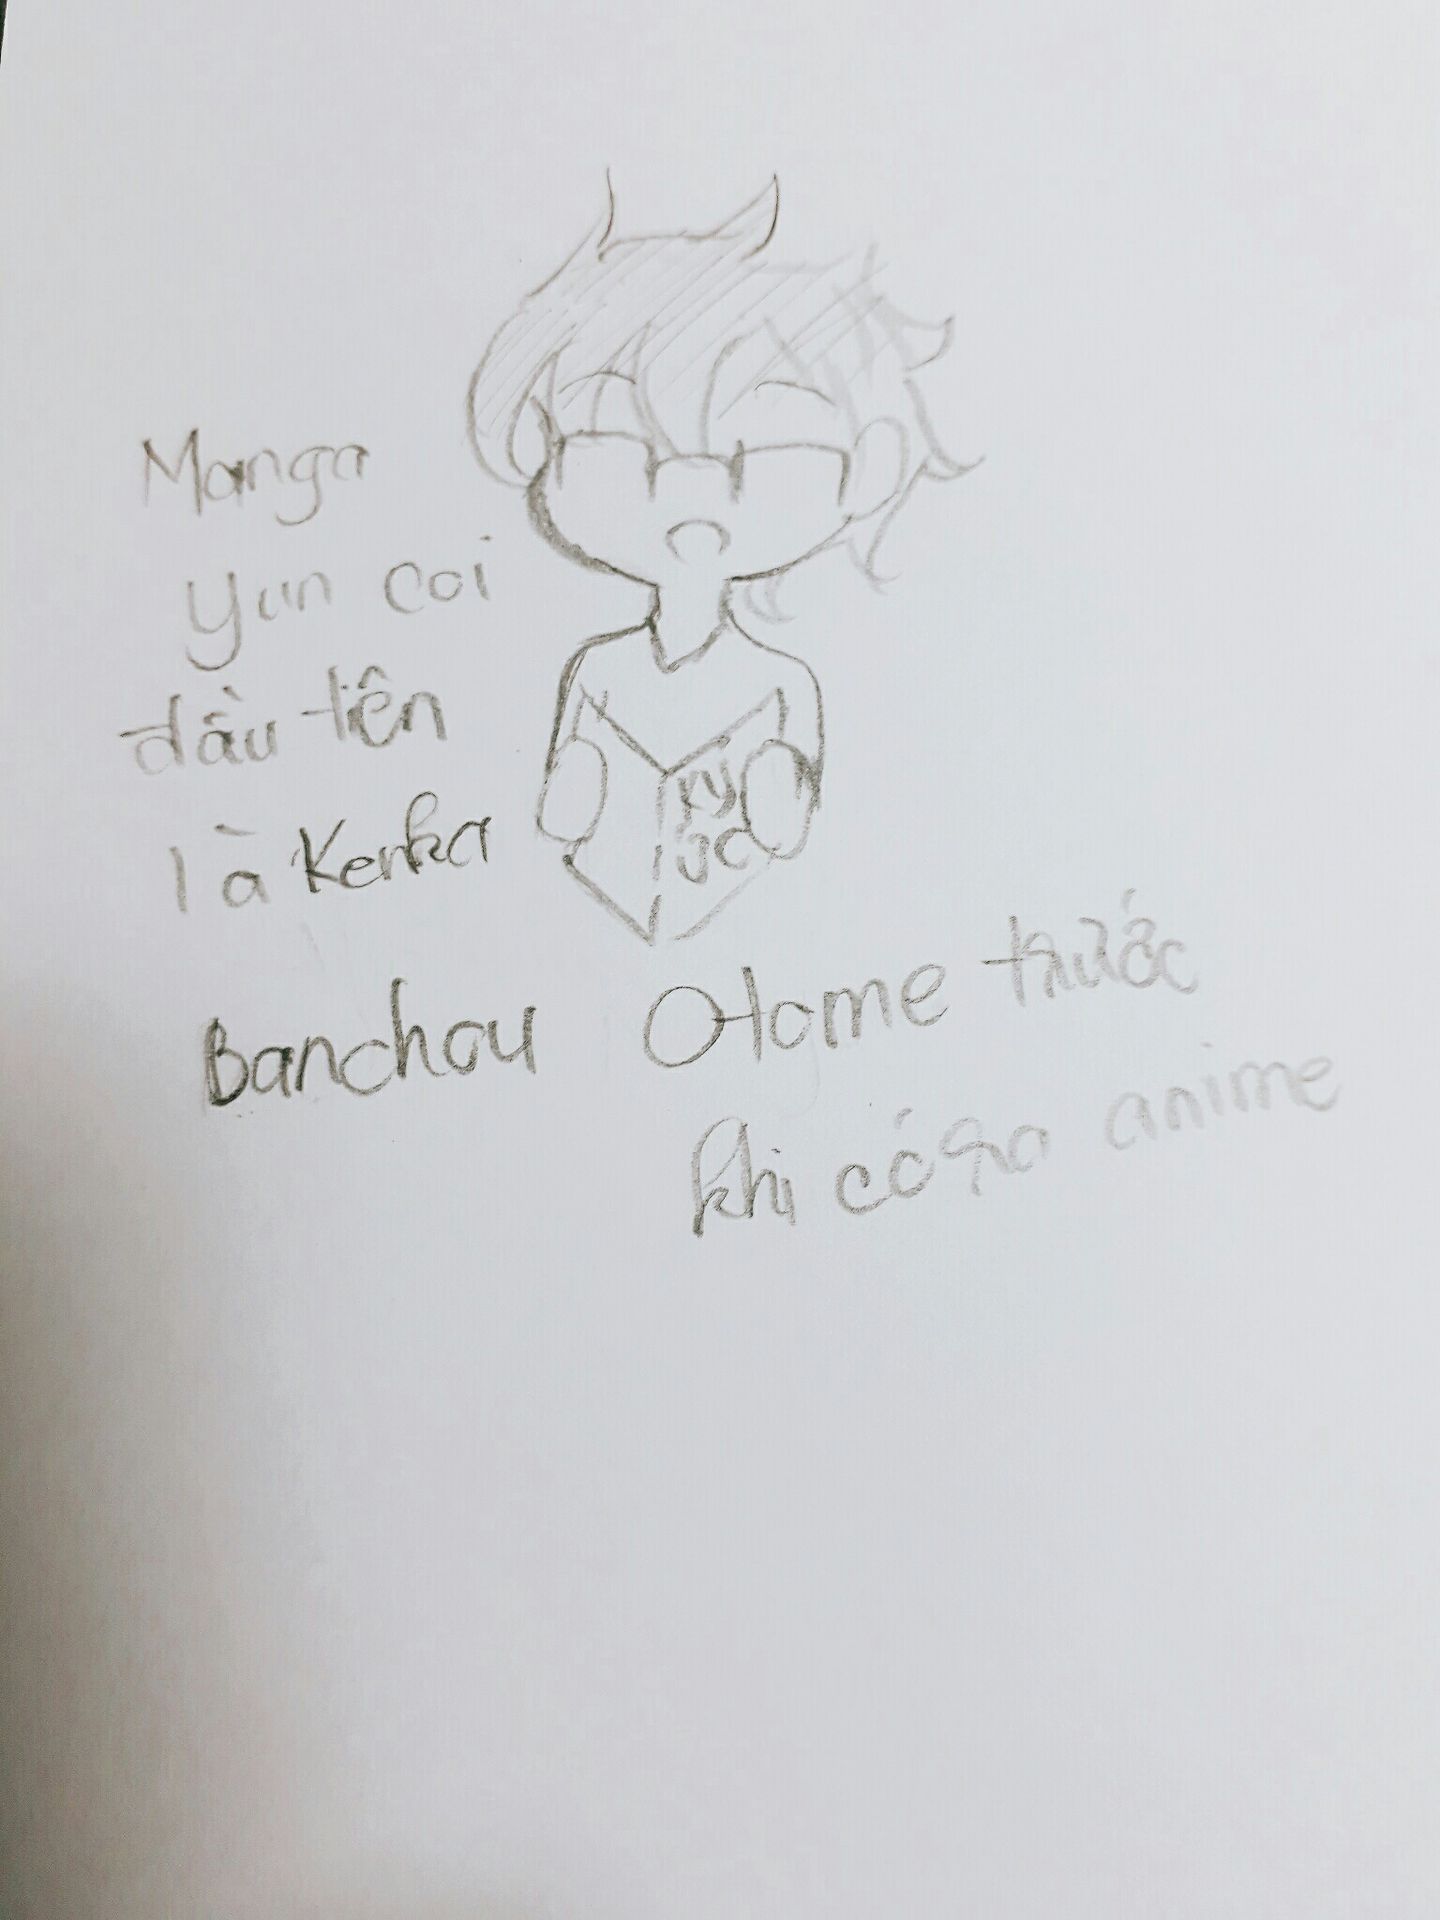 Manga
Yun coi
đầu tiên
là Kenka
KÝ
ỨC
Banchou Otome trước
khi có ra anime